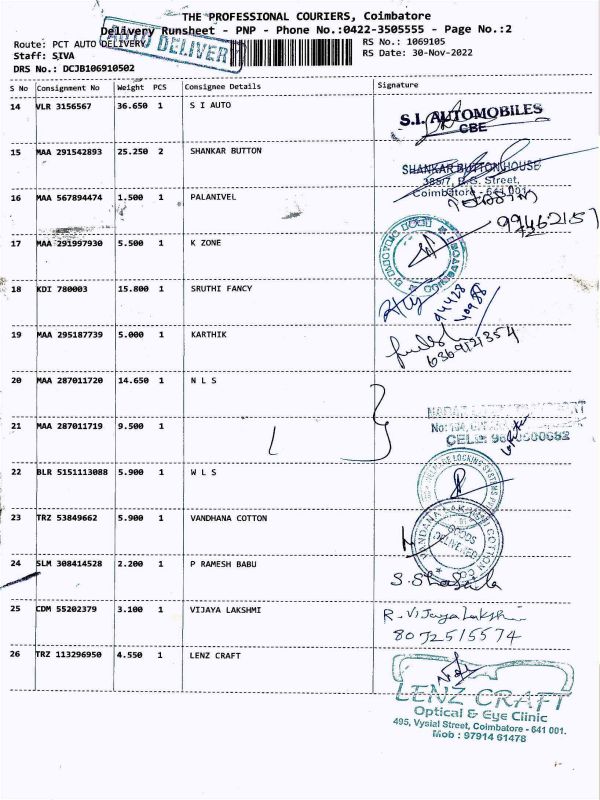 THE PROFESSIONAL COURIERS, Coimbatore
Delivery Runsheet - PNP - Phone No.:0422-3505555 - Page No.:2
AUTO DELIVERY
Route: PCT AUTO DELIVERY
RS No.: 1069105
Staff: SIVA
RS Date: 30-Nov-2022
DRS No.: DCJB106910502
S No Consignment No Weight PCS Consignee Details Signature
14 VLR 3156567 36.650 1 S I AUTO
S.I. AUTOMOBILES
CBE
15 MAA 291542893 25.250 2 SHANKAR BUTTON
SHANKAR BUTTON HOUSE
Street,
Coimbatore - 641 001.
16 MAA 567894474 1.500 1 PALANIVEL
17 MAA 291997930 5.500 1 K ZONE
18 KDI 780003 15.800 1 SRUTHI FANCY
94428
40988
19 MAA 295187739 5.000 1 KARTHIK
6369121354
20 MAA 287011720 14.650 1 N L S
21 MAA 287011719 9.500 1
22 BLR 5151113088 5.900 1 W L S
23 TRZ 53849662 5.900 1 VANDHANA COTTON
GOODS
DELIVERED
24 SLM 308414528 2.200 1 P RAMESH BABU
25 CDM 55202379 3.100 1 VIJAYA LAKSHMI
R. Vijaya Lakshmi
8072515574
26 TRZ 113296950 4.550 1 LENZ CRAFT
LENZ CRAFT
Optical & Eye Clinic
495, Vysial Street, Coimbatore - 641 001.
Mob : 97914 61478